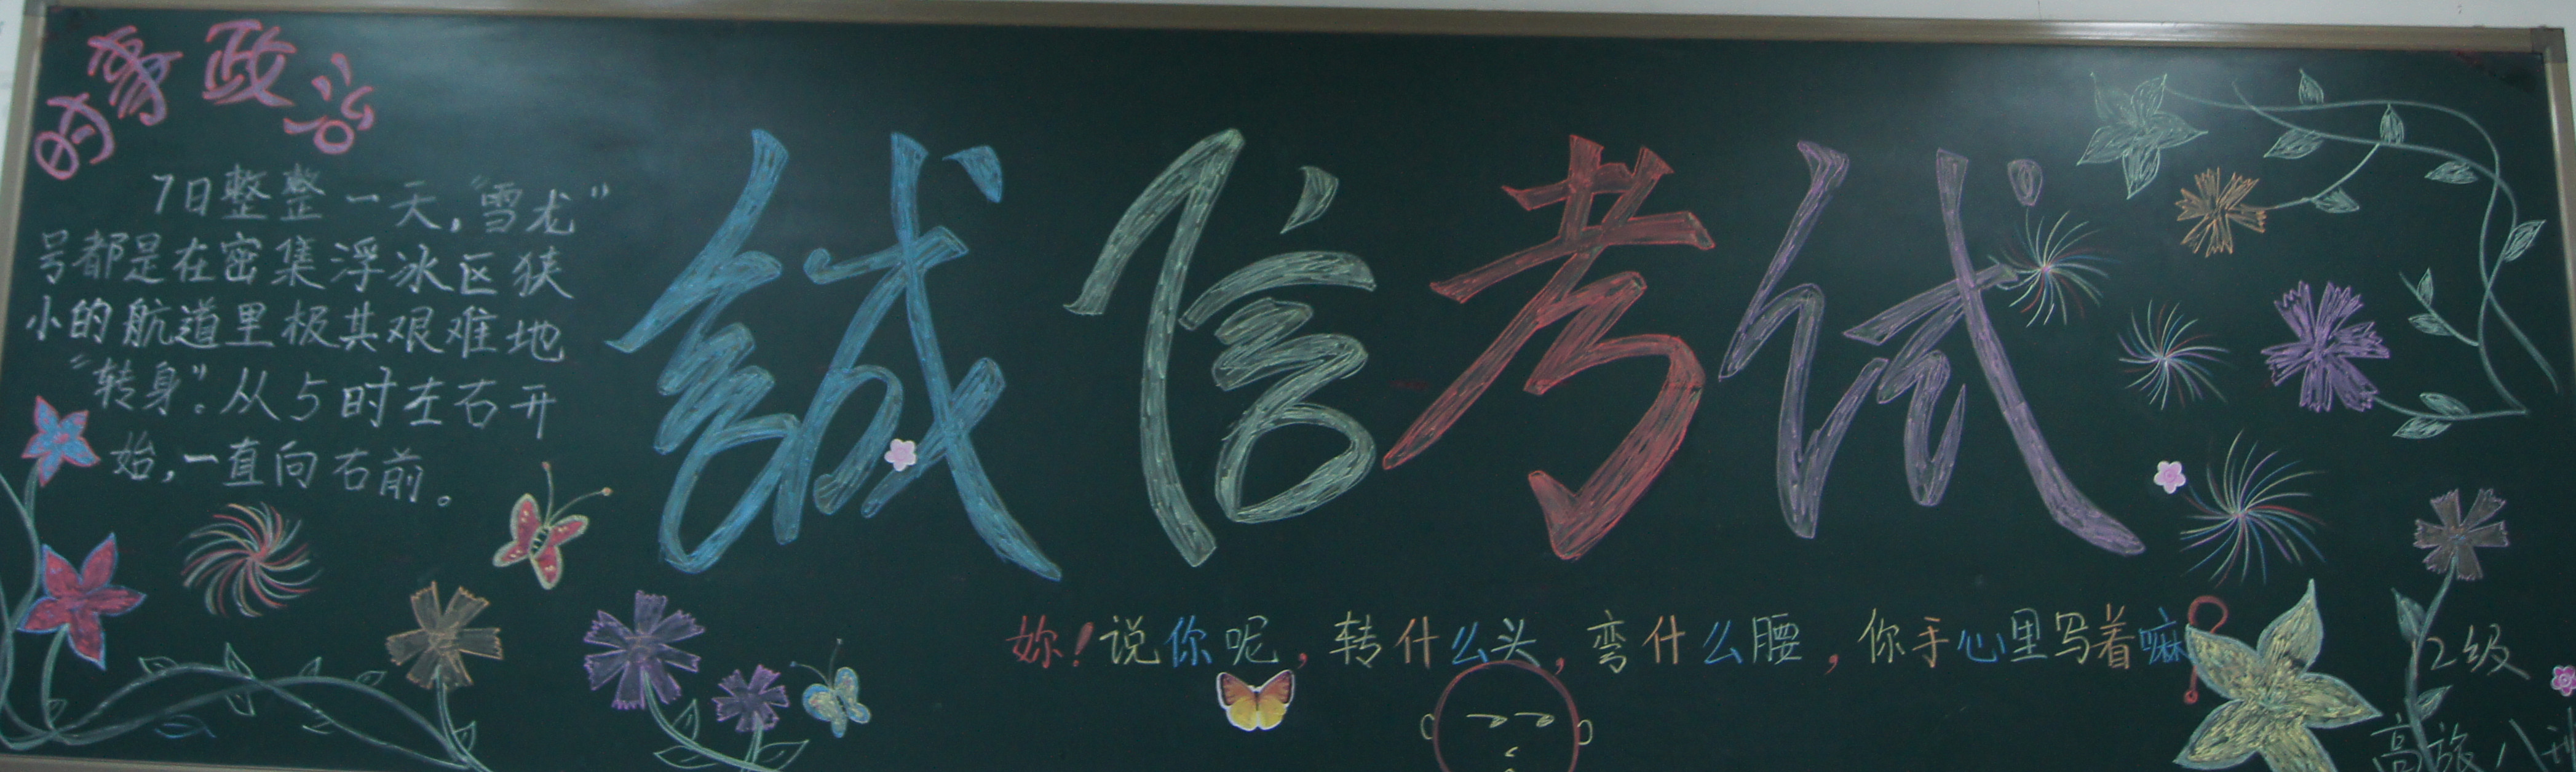 时事政治
7日整整一天，“雪龙”
号都是在密集浮冰区狭
小的航道里极其艰难地
“转身”。从5时左右开
始，一直向右前。
誠信考试
妳！说你呢，转什么头，弯什么腰，你手心里写着嘛？
12级
高旅八